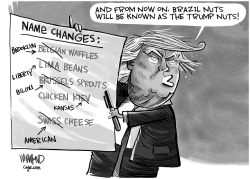 AND FROM NOW ON, BRAZIL NUTS
WILL BE KNOWN AS THE TRUMP NUTS!
NAME CHANGES:
BROOKLYN
BELGIAN WAFFLES
LIBERTY
LIMA BEANS
BILOXI
BRUSSELS SPROUTS
CHICKEN KIEV
KANSAS
SWISS CHEESE
AMERICAN
cagle.com